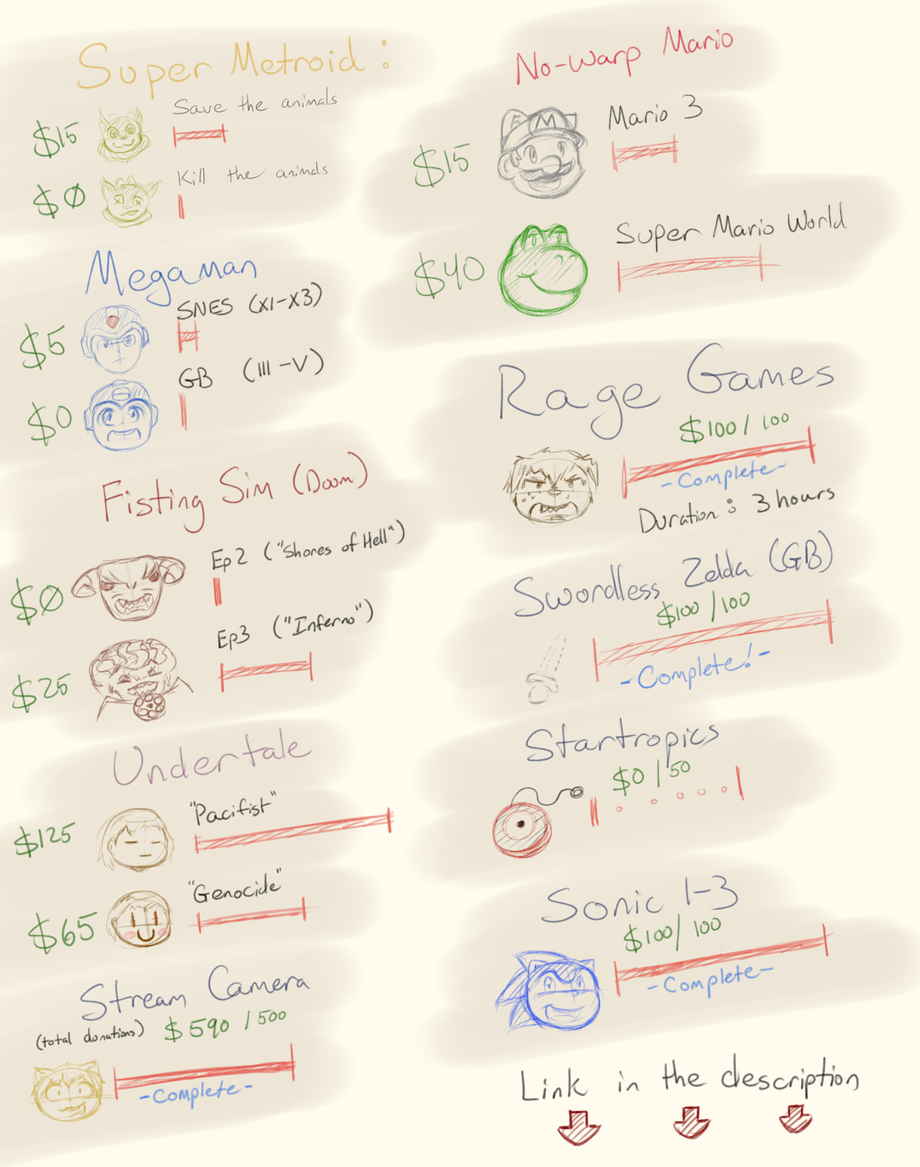 Super Metroid:
$15 Save the animals
$0 Kill the animals
Megaman
$5 SNES (X1-X3)
$0 GB (III-V)
Fisting Sim (Doom)
$0 Ep2 ("Shores of Hell")
$25 Ep3 ("Inferno")
Undertale
$125 "Pacifist"
$65 "Genocide"
Stream Camera
(total donations) $590/500
-Complete-
No-Warp Mario
$15 Mario 3
$40 Super Mario World
Rage Games
$100/100
-Complete-
Duration: 3 hours
Swordless Zelda (GB)
$100/100
-Complete!-
Startropics
$0/50
Sonic 1-3
$100/100
-Complete-
Link in the description